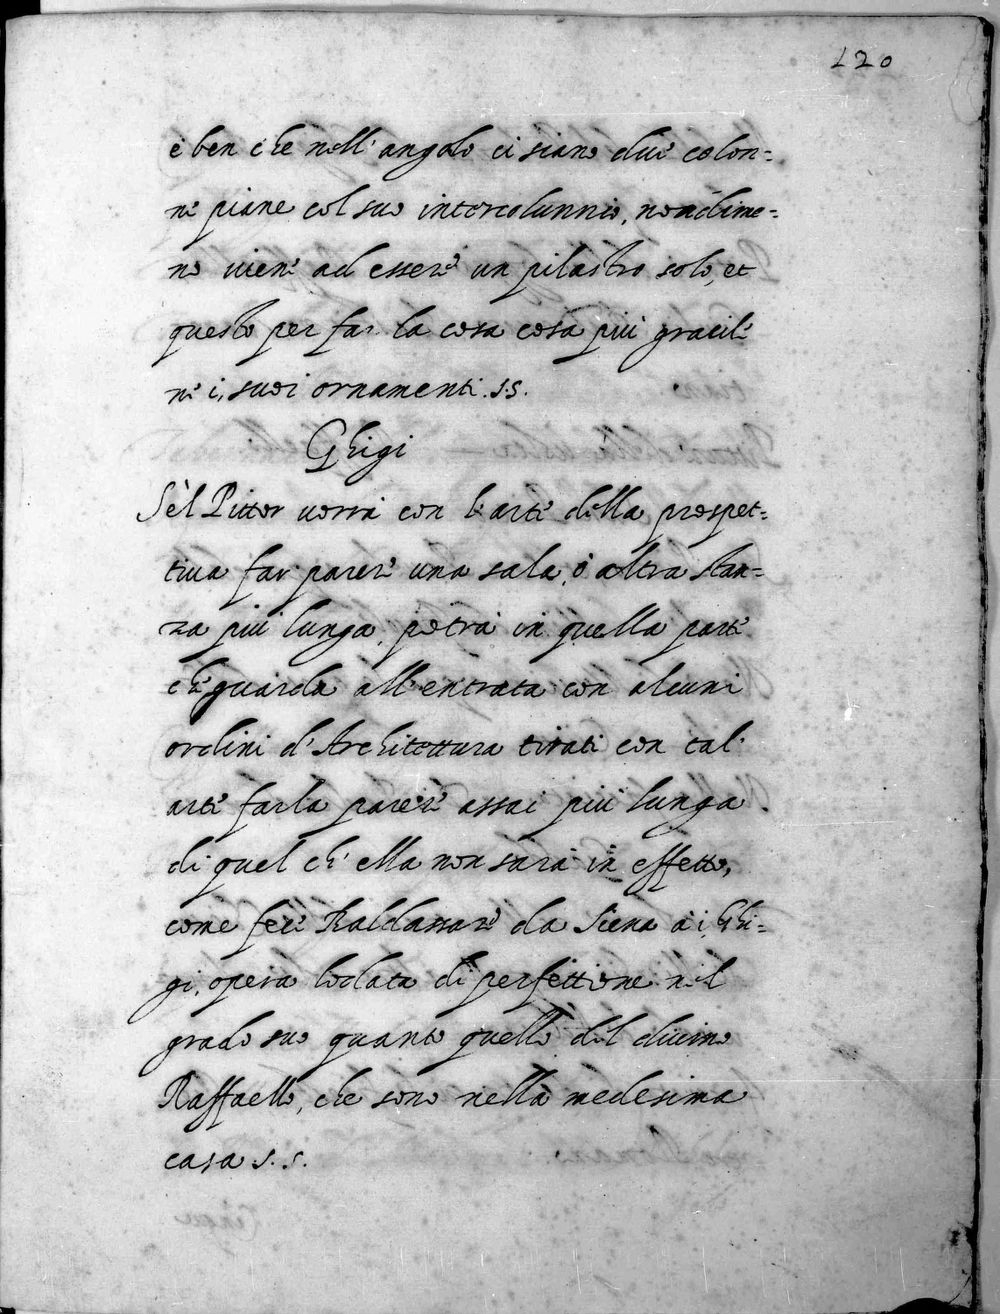 120
è ben che nell'angolo ci siano due colon=
ne piane col suo intercolunnio, nondime=
no viene ad essere un pilastro solo, et
questo per far la cosa cosa più gracile
ne i, suoi ornamenti. s.s.
Ghigi
Sè'l Pittor vorrà con l'arte della prospet=
tiva far parere una sala, ò altra stan=
za più lunga, potrà in quella parte
che guarda all'entrata con alcuni
ordini d'Architettura tirati con tal'
arte farla parere assai più lunga
di quel ch'ella non sarà in effetto,
come fece Baldassare da Siena à i Ghi=
gi, opera lodata di perfettione nel
grado suo quanto quelle del divino
Raffaello, che sono nella medesima
casa s.s.